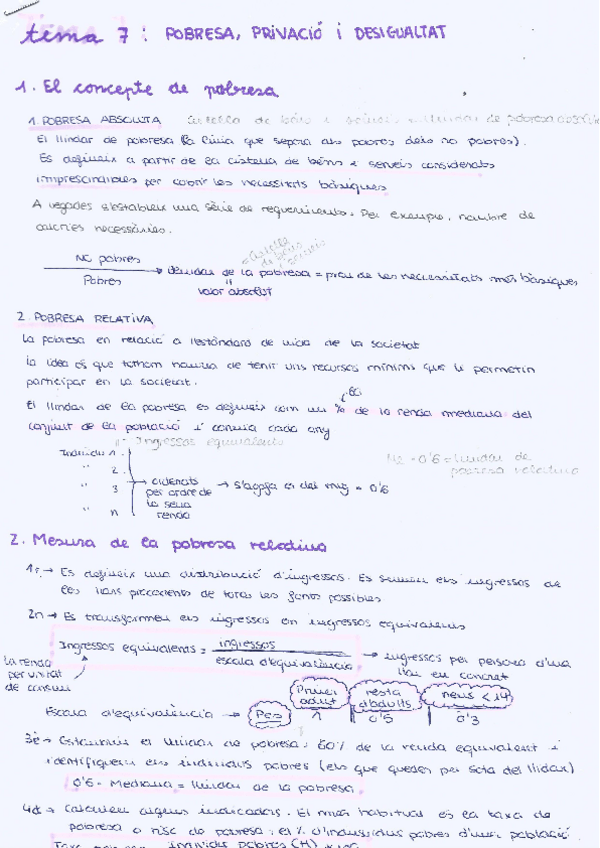 tema 7: POBRESA, PRIVACIÓ i DESIGUALTAT
1. El concepte de pobresa
1. POBRESA ABSOLUTA Cistella de béns i serveis = llindar de pobresa
El llindar de pobresa (la línia que separa als pobres dels no pobres).
Es defineix a partir de la cistella de béns i serveis considerats
imprescindibles per cobrir les necessitats bàsiques
A vegades s'estableix una sèrie de requeriments. Per exemple, nombre de
calories necessàries.
= Cistella de béns i serveis
No pobres
Pobres
→ llindar de la pobresa = preu de les necessitats més bàsiques
"
valor absolut
2. POBRESA RELATIVA
La pobresa en relació a l'estàndard de vida de la societat
La idea és que tothom hauria de tenir uns recursos mínims que li permetin
participar en la societat.
60
El llindar de la pobresa es defineix com un % de la renda mediana del
conjunt de la població i canvia cada any
Ingressos equivalents
Individu 1.
" 2.
" 3
" n
→ ordenats
per ordre de
la seva
renda
→ s'agafa el del mig = 0'6
N2 = 0'6 = llindar de
pobresa relativa
2. Mesura de la pobresa relativa
1r → Es defineix una distribució d'ingressos. Es sumen els ingressos de
les llars procedents de totes les fonts possibles
2n → Es transformen els ingressos en ingressos equivalents
Ingressos equivalents = ingressos
escala d'equivalència
→ ingressos per persona d'una
llar en concret
La renda
per unitat
de consum
Escala d'equivalència → Pes
Primer
adult
1
resta
d'adults
0'5
nens < 14
0'3
3è → Establim el llindar de pobresa: 60% de la renda equivalent i
identifiquem els individus pobres (els que queden per sota del llindar)
0'6 · Mediana = llindar de la pobresa
4t → Calculem alguns indicadors. El més habitual és la taxa de
pobresa o risc de pobresa: el % d'individus pobres d'una població.
individus pobres (H)